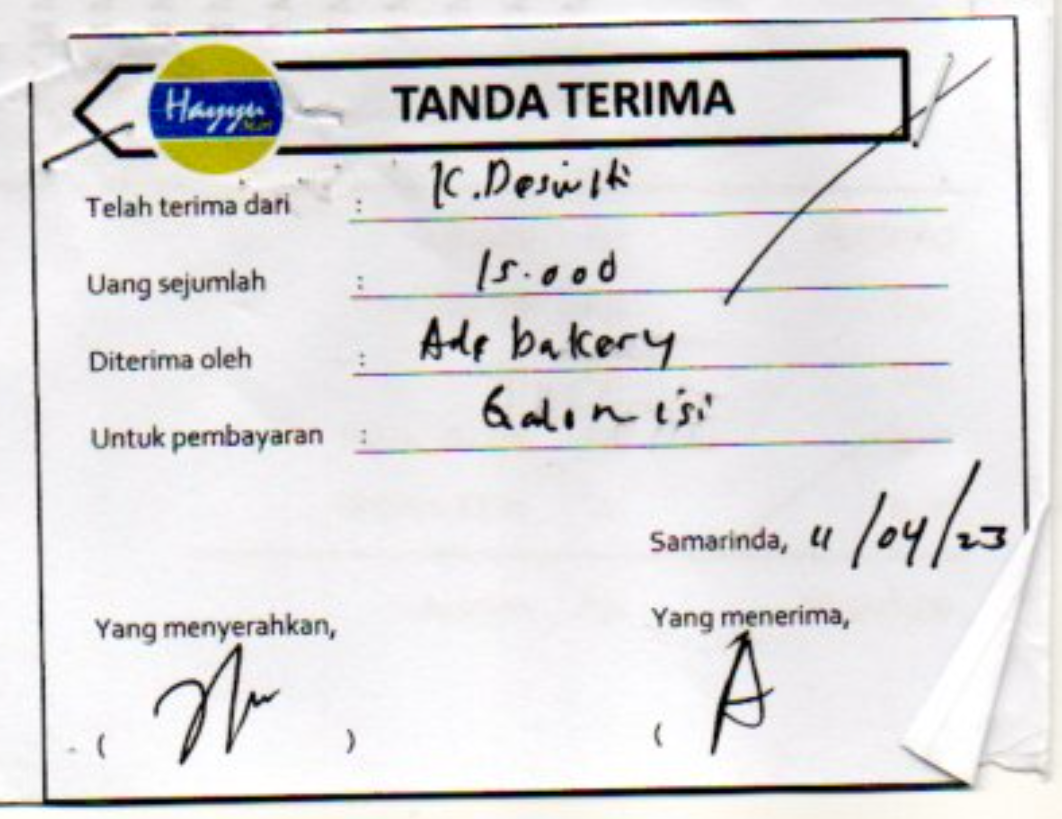 Hayyu
TANDA TERIMA
Telah terima dari : K. Desiwiti
Uang sejumlah : 15.000
Diterima oleh : Ade bakery
Untuk pembayaran : Galon isi
Samarinda, 11/04/23
Yang menyerahkan, Yang menerima,
( ) (